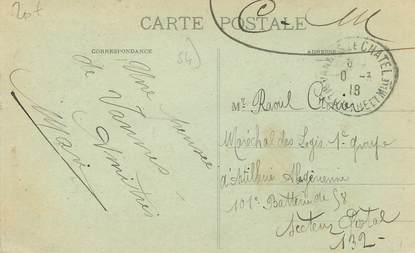 20f
CARTE POSTALE
C. M
CORRESPONDANCE
ADRESSE
54
LE CHATEL
18
Une pensée
de Vannes
Amitiés
Mr Raoul
Maréchal des Logis 1er groupe
d'Artillerie Algérienne
101e Batterie de 58
Secteur Postal
132-